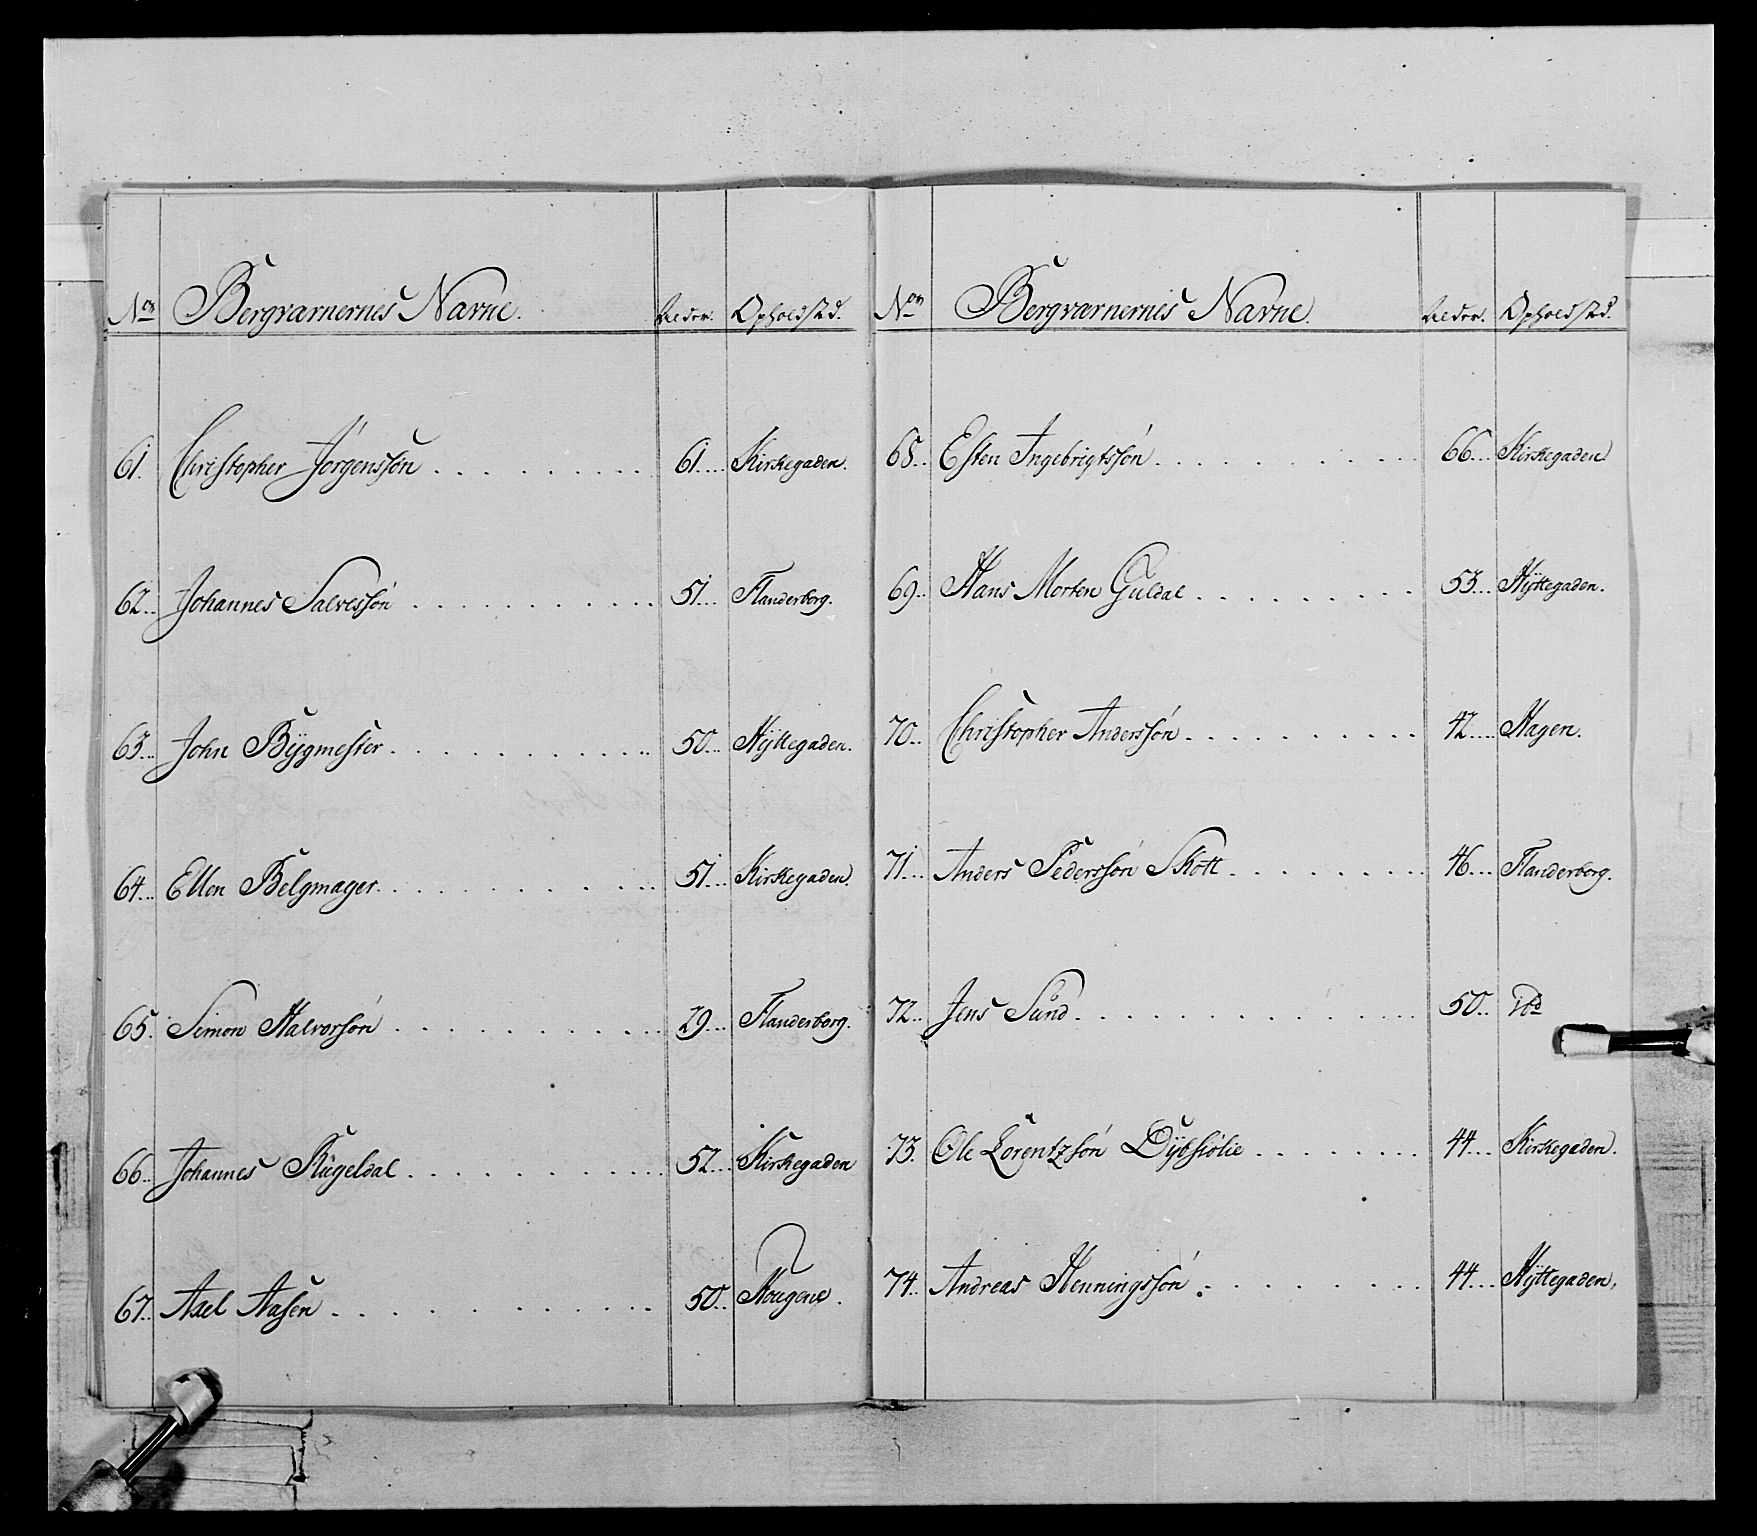 No Bergværnernes Navne. Alder. Opholdstd.
61. Christopher Jörgenssön 61 Kirkegaden.
62. Johannes Salvessön 51 Flanderborg.
63. John Bÿgmester 50 Hÿttegaden.
64. Ellen Belgmager 51 Kirkegaden.
65. Simon Halvorsön 29 Flanderborg.
66. Johannes Kugeldal 52 Kirkegaden
67. Axel Aasen 50 Hougene.
No Bergværnernes Navne. Alder. Opholdstd.
68. Esten Ingebrigtssön 66 Kirkegaden
69. Hans Morten Guldal 53 Hÿttegaden.
70. Christopher Anderssön 42 Hagen.
71. Anders Pederssön Skott 46 Flanderborg.
72. Jens Sund 50
73. Ole Lorentzsön Dÿbsiölie 44 Kirkegaden.
74. Andreas Henningssön 44 Hÿttegaden.